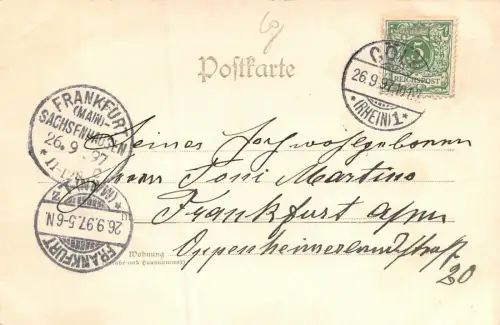 Postkarte
CÖLN
26.9.97.10
(RHEIN) 1
5
REICHSPOST
FRANKFURT
(MAIN)-
SACHSENHAUSEN
26. 9. 97
FRANKFURT
26.9.97.5-6N.
(MAIN)
Seiner Hochwohlgeboren
Herrn Toni Martino
Frankfurt a/m
Oppenheimerlandstraße
20
Wohnung
(Straße und Hausnummer)